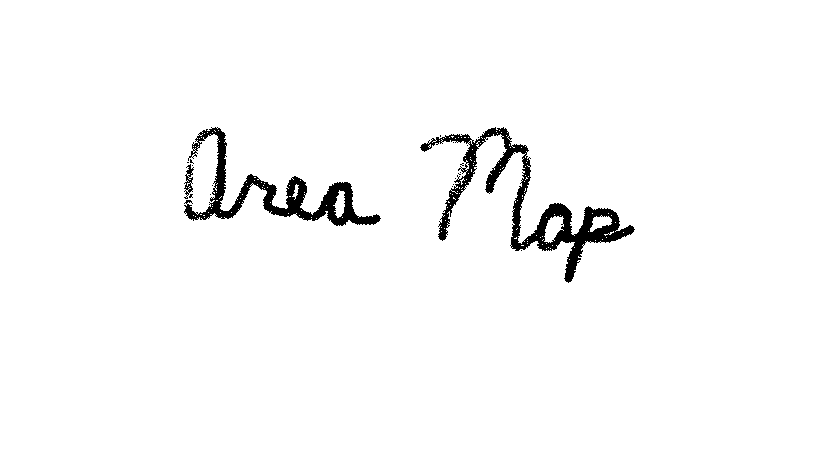 Area Map